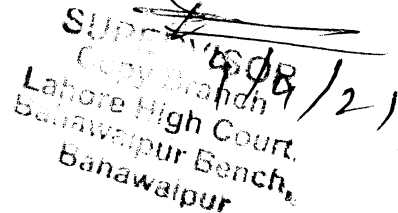 SUPERVISOR
Copy Branch
Lahore High Court,
Bahawalpur Bench,
Bahawalpur